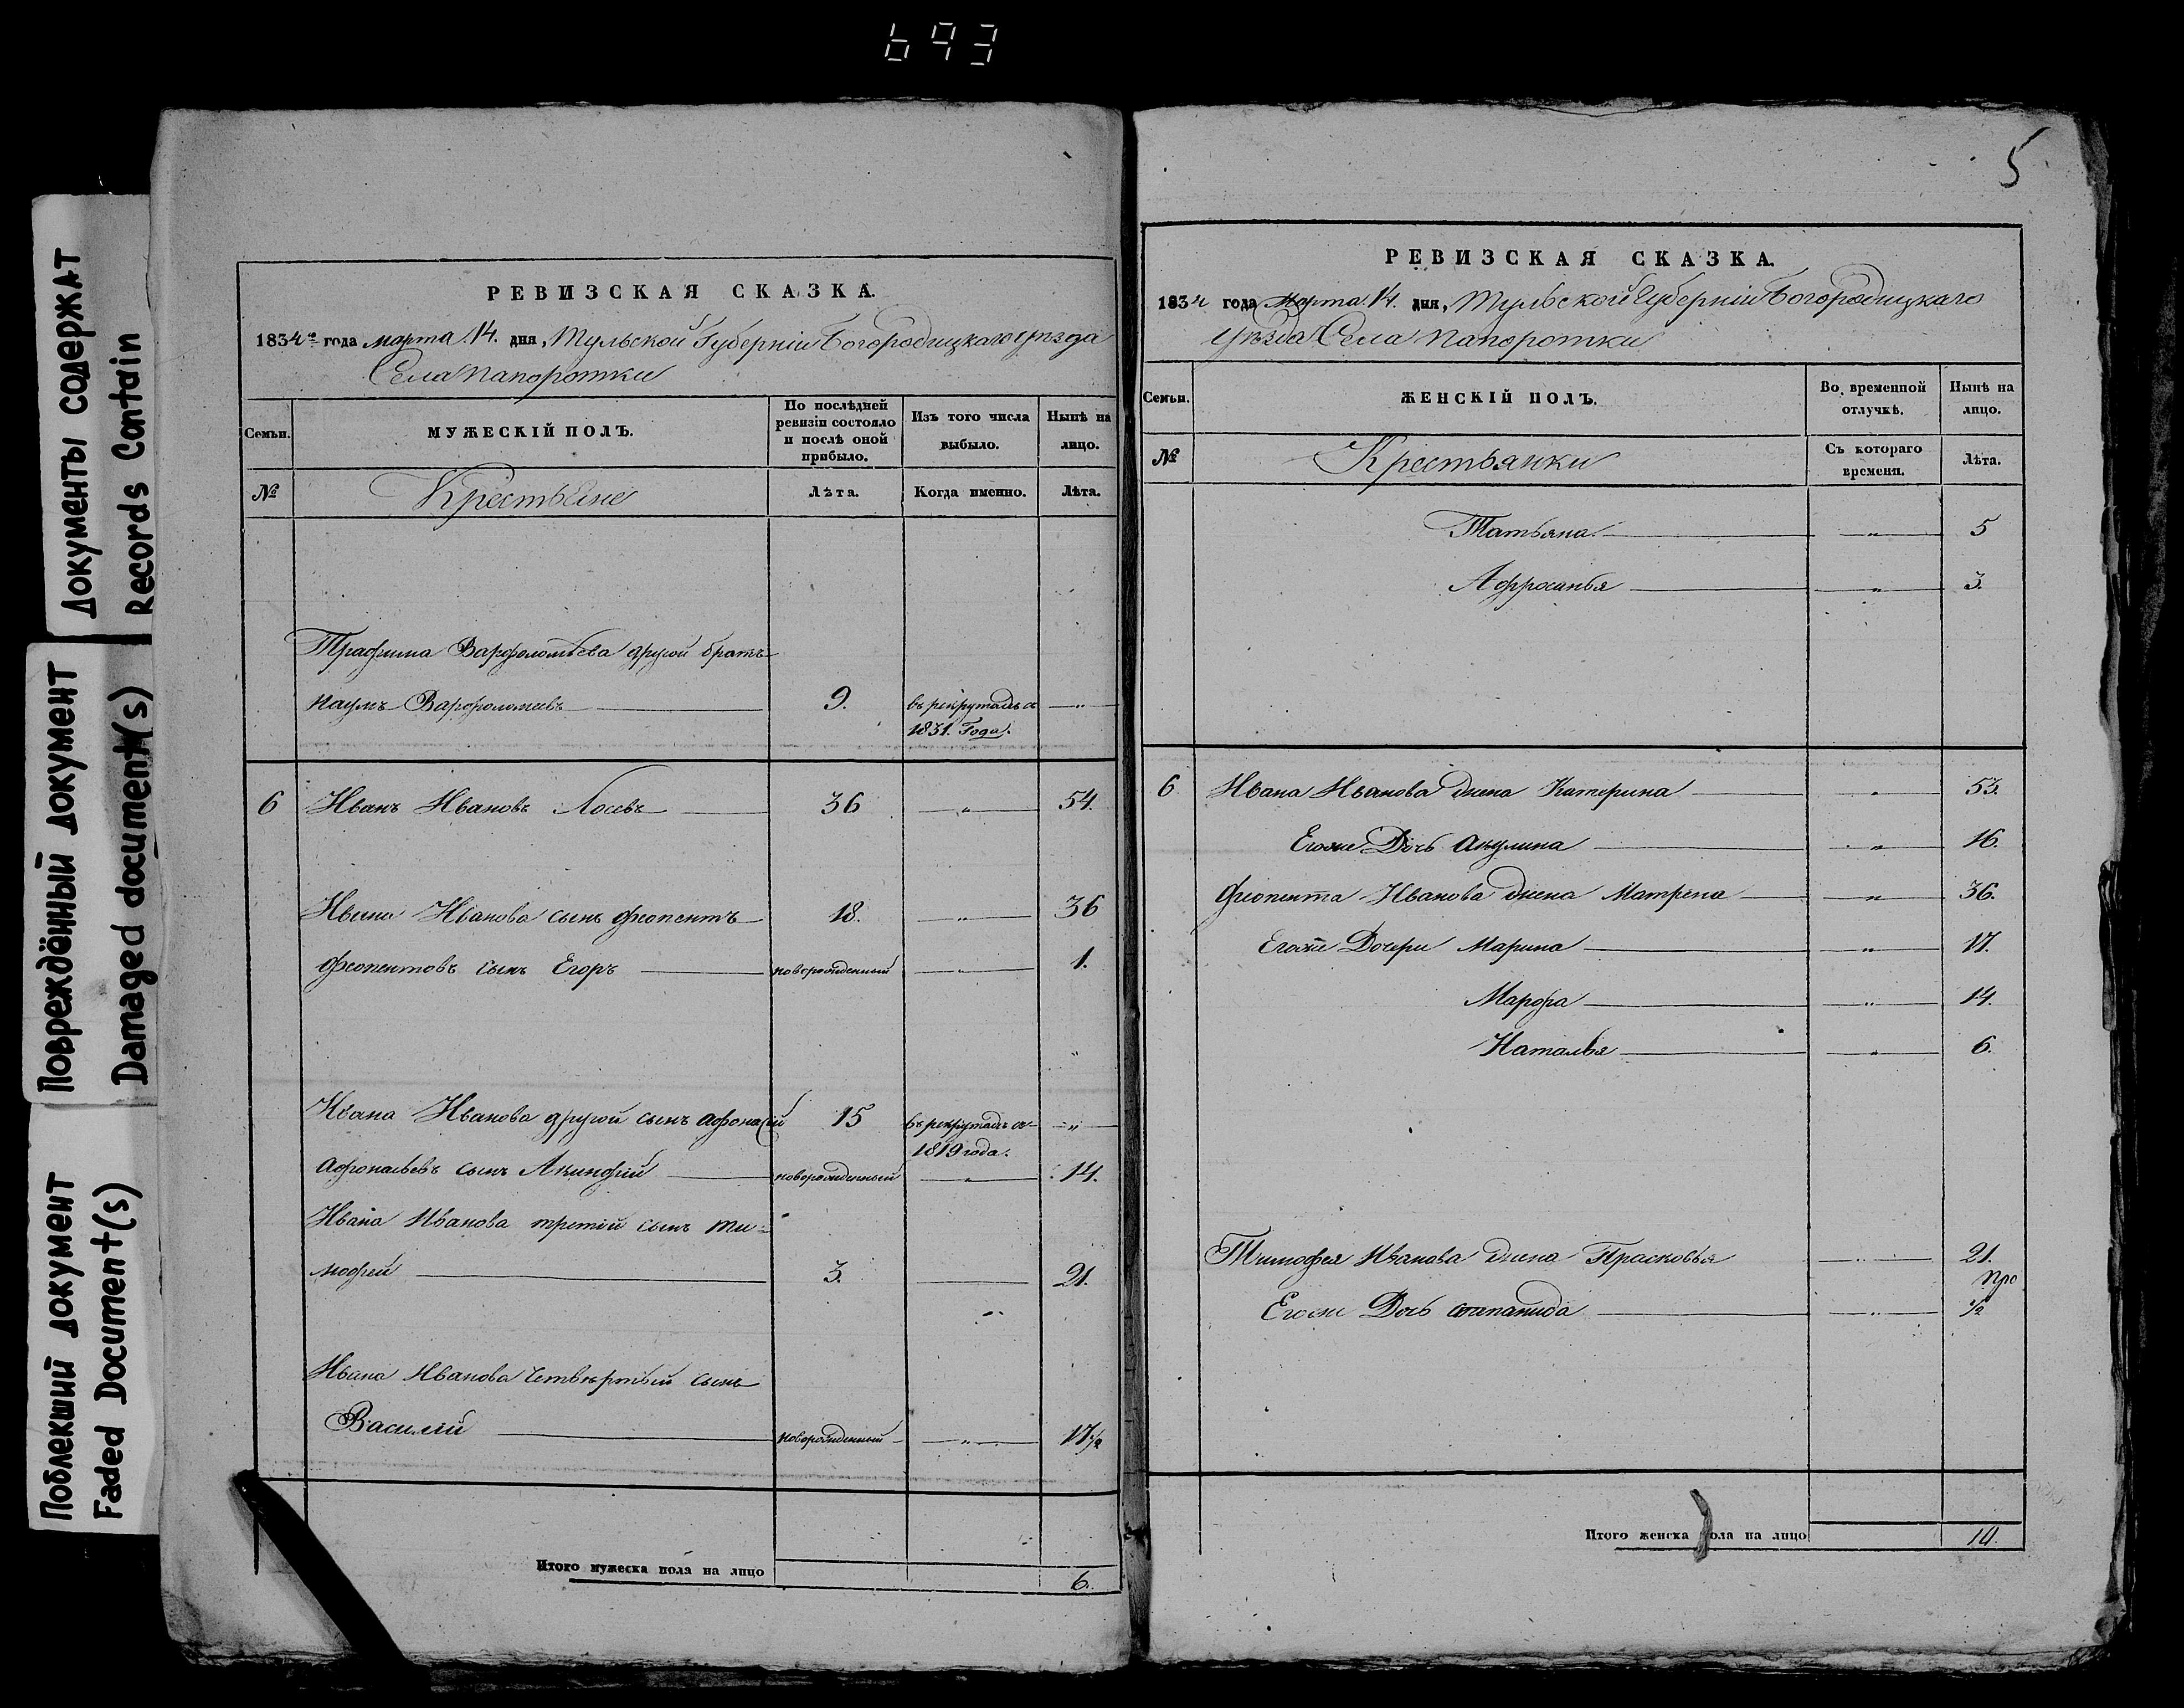 693
Документы содержат
Records Contain
Повреждённый документ
Damaged document(s)
Поблекший документ
Faded Document(s)
РЕВИЗСКАЯ СКАЗКА.
1834го года марта 14. дня, Тульской Губерніи Богородицкаго уѣзда
Села Папоротки
Семьи.
МУЖЕСКІЙ ПОЛЪ.
По послѣдней ревизіи состояло и послѣ оной прибыло.
Изъ того числа выбыло.
Нынѣ на лицо.
№
Крестьяне
Лѣта.
Когда именно.
Лѣта.
Трафима Варфоломѣева другой братъ
Наумъ Варфоломеевъ 9. въ рекрутахъ съ „
1831. Года.
6 Иванъ Ивановъ Лосевъ 36 „ 54.
Ивана Иванова сынъ Феопентъ 18. „ 36
Феопентовъ сынъ Егоръ новорожденный „ 1.
Ивана Иванова другой сынъ Афонасій 15 въ рекрутахъ съ „
1819 года.
Афонасьевъ сынъ Акинфій новорожденный „ 14.
Ивана Иванова третій сынъ Ти-
мофей 3. 21.
Ивана Иванова четвертый сынъ
Василій новорожденный „ 17½
Итого мужеска пола на лицо 6.
5
РЕВИЗСКАЯ СКАЗКА.
1834 года Марта 14. дня, Тульской Губерніи Богородицкаго
уѣзда Села Папоротки
Семьи.
ЖЕНСКІЙ ПОЛЪ.
Во временной отлучкѣ.
Нынѣ на лицо.
№
Крестьянки
Съ котораго времени.
Лѣта.
Татьяна „ 5
Афросинья „ 3.
6 Ивана Иванова жена Катерина „ 53.
Егоже Дочь Акулина „ 16.
Феопента Иванова жена Матрена „ 36.
Егоже Дочери Марина „ 17.
Марфа „ 14.
Наталья „ 6.
Тимофея Иванова жена Прасковья „ 21.
Егоже Дочь степанида „ ½
Итого женска пола на лицо 10.